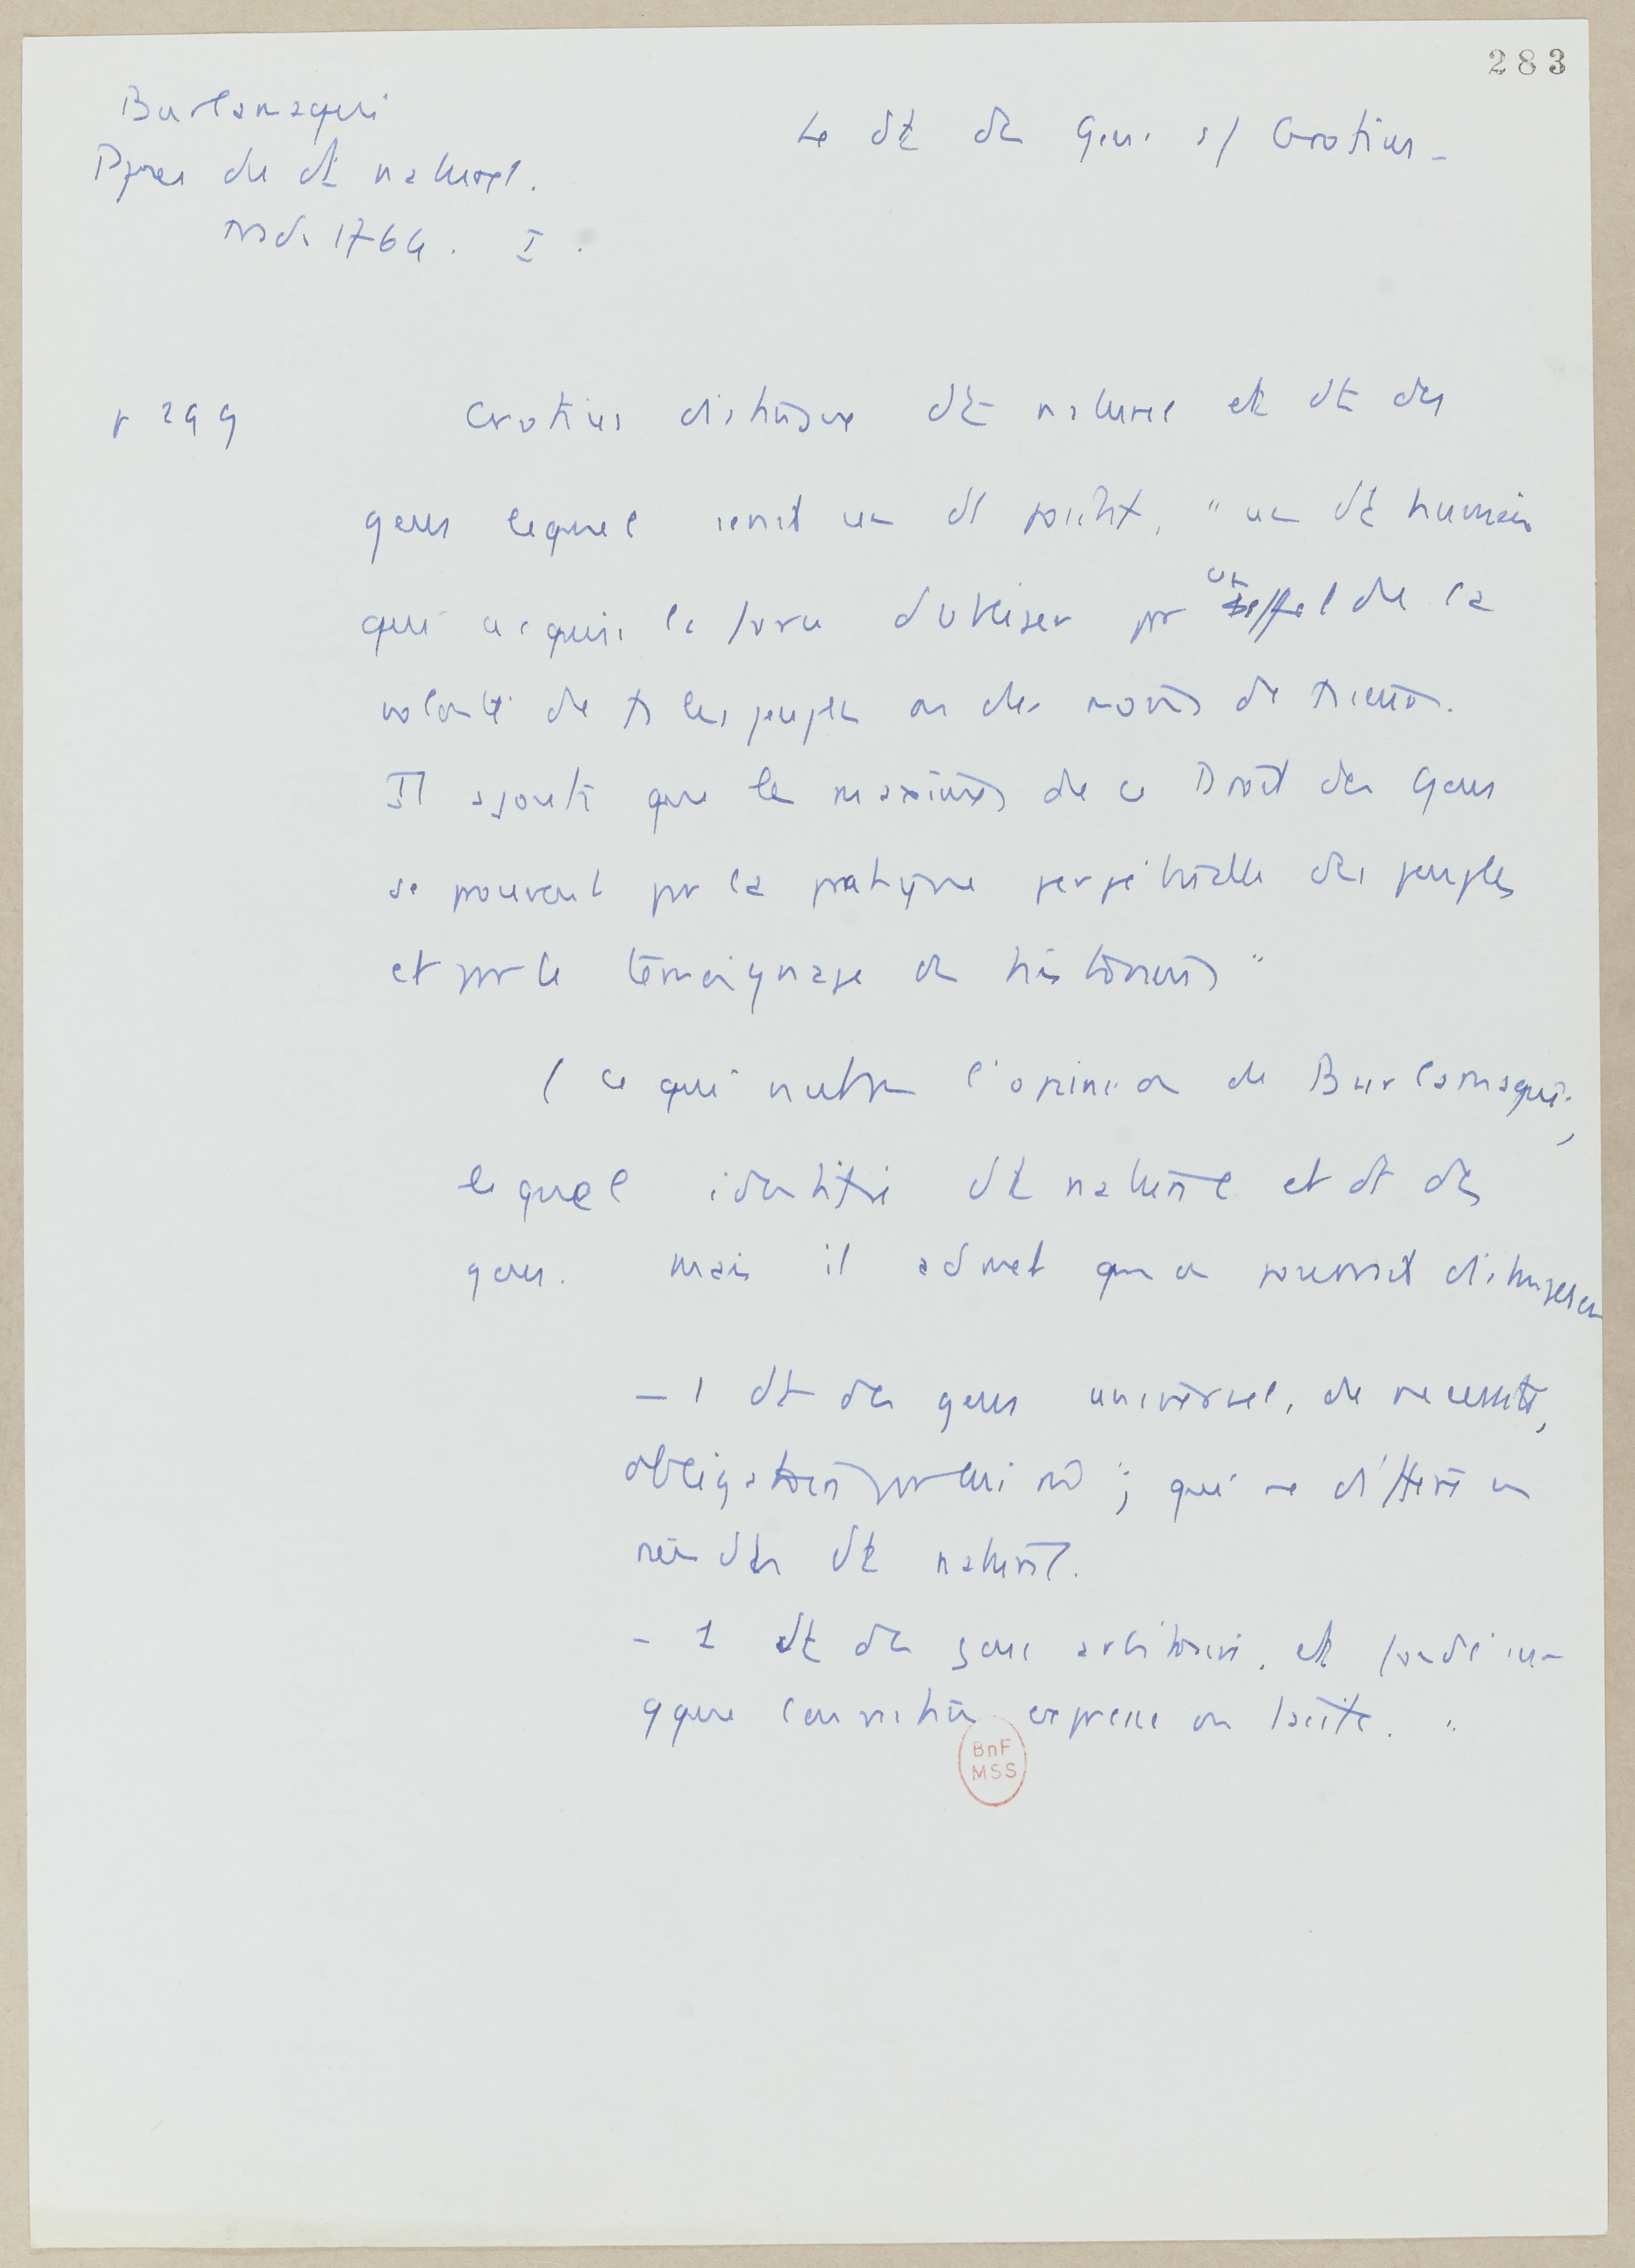 283
Burlamaqui
Le dt des Gens s/ Grotius -
Ppes du dt naturel.
nvd. 1764. I.
p 299
Grotius distingue dt naturel et dt des
gens lequel serait un dt positif, "un dt humain
qui acquis la force d'obliger par un effet de la
volonté de ts les peuples ou du moins de
Il ajoute que les maximes de ce Droit des Gens
se prouvent par la pratique perpétuelle des peuples
et par le témoignage des historiens"
( ce qui n'est pas l'opinion de Burlamaqui,
lequel identifie dt naturel et dt des
gens. mais il admet qu'on pourrait distinguer
- 1 dt des gens universel, de nécessité,
obligatoire par lui m̂ ; qui ne diffère en
rien du dt naturel.
- 1 dt des gens arbitraire. et fondé sur
qque convention expresse ou tacite. "
BnF
MSS